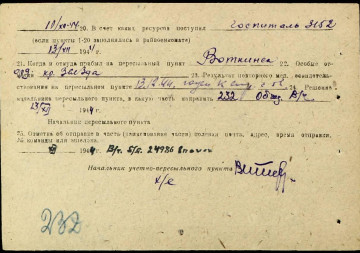 10/XII-44 20. В счет каких ресурсов поступил госпиталь 3152
(если пункты 1-20 заполнялись в райвоенкомате)
13/XII 1944 г.
21. Когда и откуда прибыл на пересыльный пункт Воткинск 22. Особые от-
кр. Звезда 23. Результат повторного мед. освидетель-
ствования на пересыльном пункте 13/12.44 годен к 24. Решение
начальника пересыльного пункта, в какую часть направить 232
13/XII 1944
Начальник пересыльного пункта
25. Отметка об отправке в часть (наименование части) полевая почта, адрес, время отправки,
№ команды или эшелона.
1944 В/ч п/п. 24986
Начальник учетно-пересыльного пункта
232